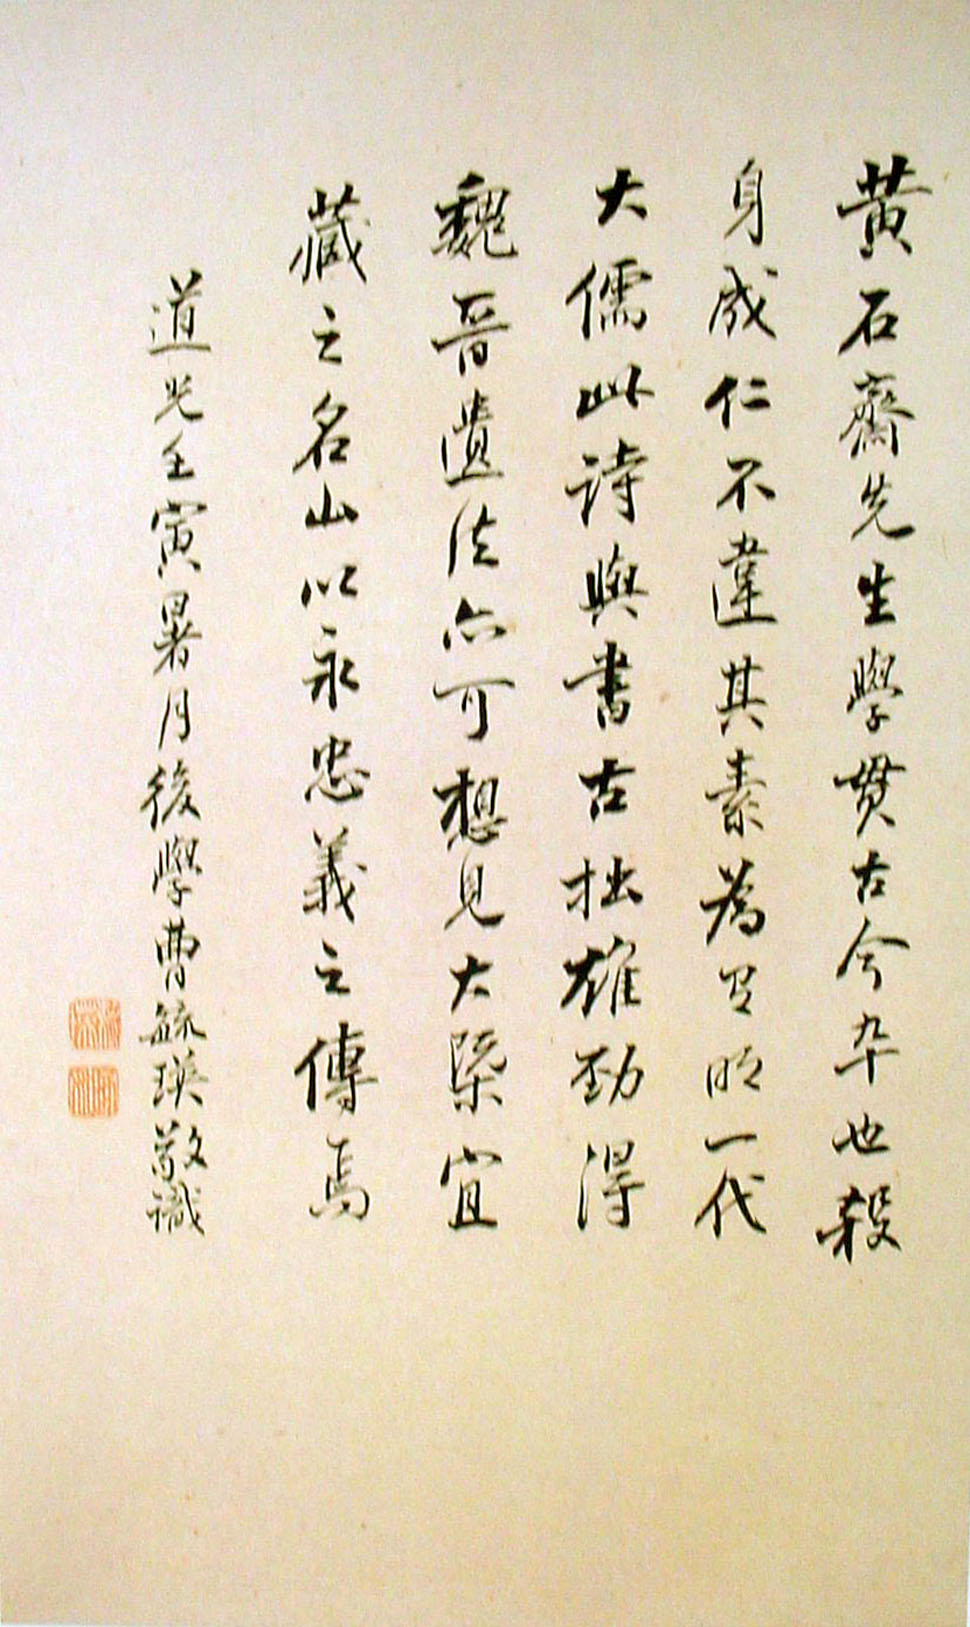 黃石齋先生學貫古今卒也殺
身成仁不違其素為有明一代
大儒此詩與書古拙雄勁得
魏晉遺法亦可想見大槩宜
藏之名山以永忠義之傳焉
道光壬寅暑月後學曹毓瑛敬識